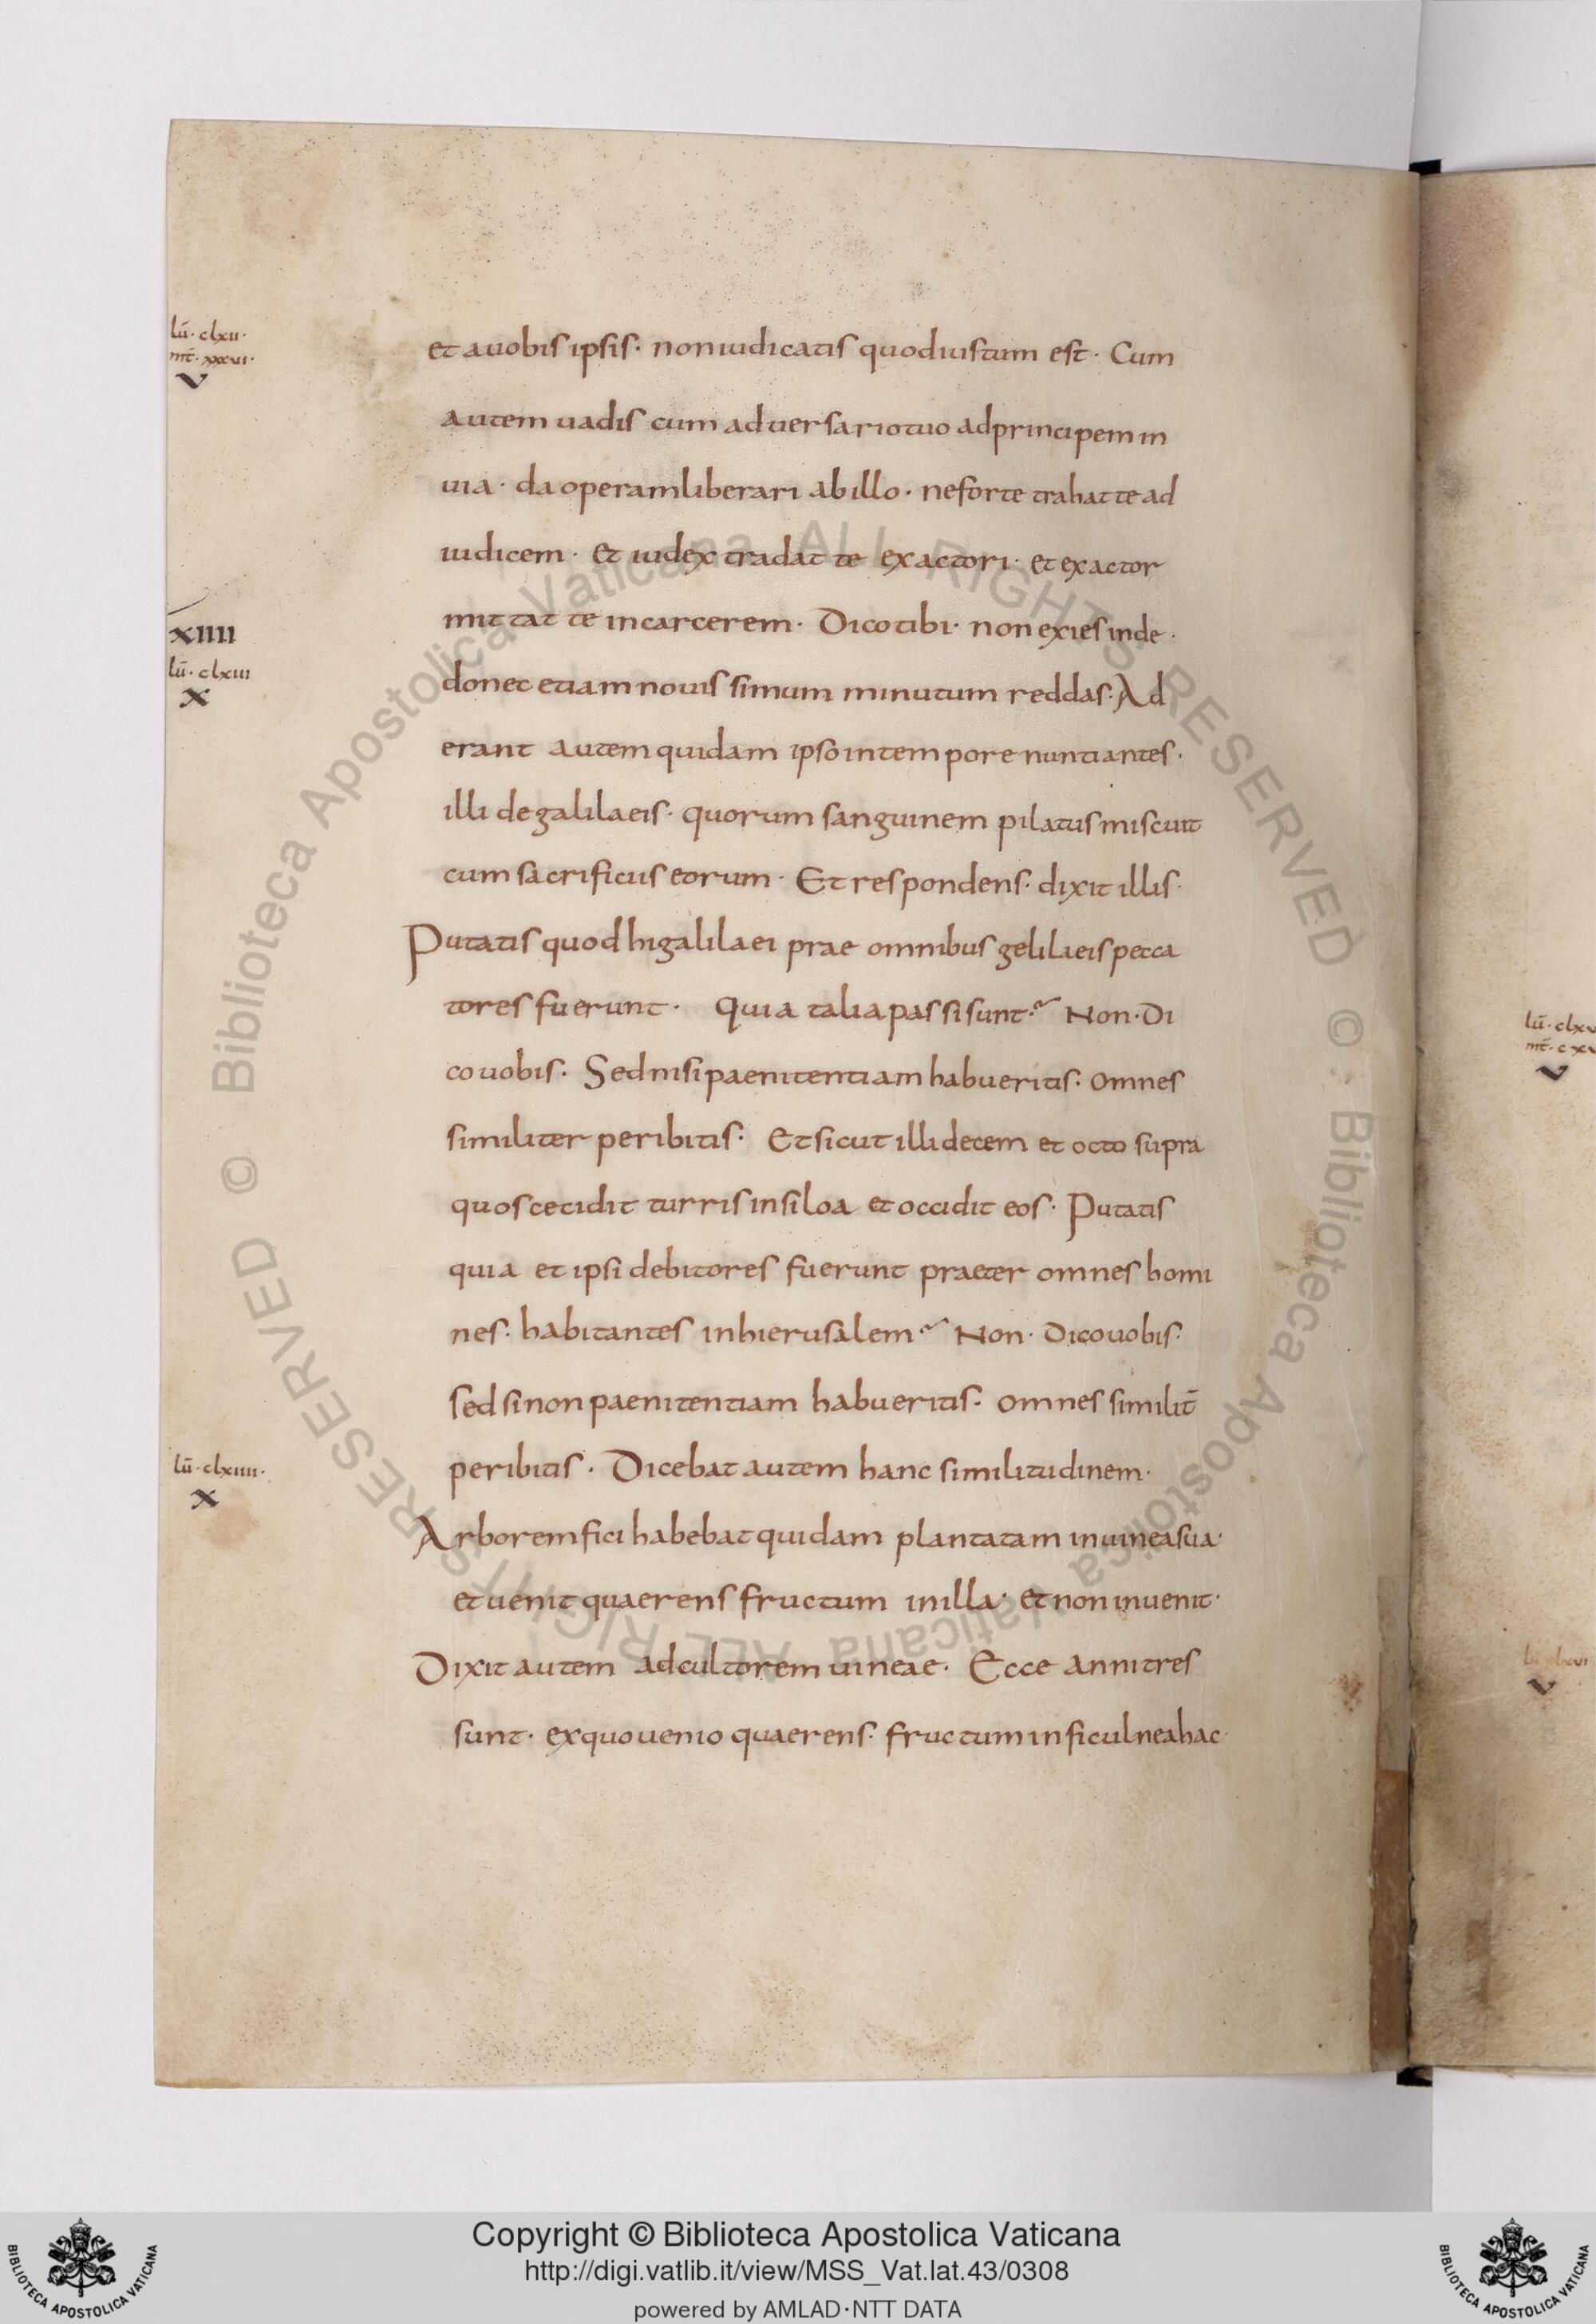 lū· clxii·
mt̄· xxxvi·
V
et auobis ipsis· noniudicatis quodiustum est· Cum
autem uadis cum aduersariotuo adprincipem in
uia· da operamliberari abillo· neforte trahat te ad
iudicem· et iudex tradat te exactori· et exactor
mittat te incarcerem· Dicotibi· non exies inde·
donec etiam nouissimum minutum reddas· Ad
XIIII
lū· clxiii
X
erant autem quidam ipsointempore nuntiantes·
illi degalilaeis· quorum sanguinem pilatus miscuit
cum sacrificiis eorum· Et respondens· dixit illis·
Putatis quod higalilaei prae omnibus gelilaeis pecca
tores fuerunt· Quia talia passi sunt· Non· Di
co uobis· Sed nisi paenitentiam habueritis· omnes
similiter peribitis· Et sicut illi decem et octo supra
quos cecidit turris insiloa et occidit eos· Putatis
quia et ipsi debitores fuerunt praeter omnes homi
nes· habitantes inhierusalem· Non· Dicouobis·
sed si non paenitentiam habueritis· omnes similit̄
peribitis· Dicebat autem hanc similitudinem·
lū· clxiiii·
X
Arborem fici habebat quidam plantatam inuinea sua·
et uenit quaerens fructum inilla· et non inuenit·
Dixit autem adcultorem uineae· Ecce anni tres
sunt· exquo uenio quaerens· fructum inficulnea hac·
lū· clxv
mt̄· cxv
V
V
© Biblioteca Apostolica Vaticana ALL RIGHTS RESERVED
© Biblioteca Apostolica Vaticana ALL RIGHTS RESERVED
Copyright © Biblioteca Apostolica Vaticana
http://digi.vatlib.it/view/MSS_Vat.lat.43/0308
powered by AMLAD·NTT DATA
BIBLIOTECA APOSTOLICA VATICANA
BIBLIOTECA APOSTOLICA VATICANA